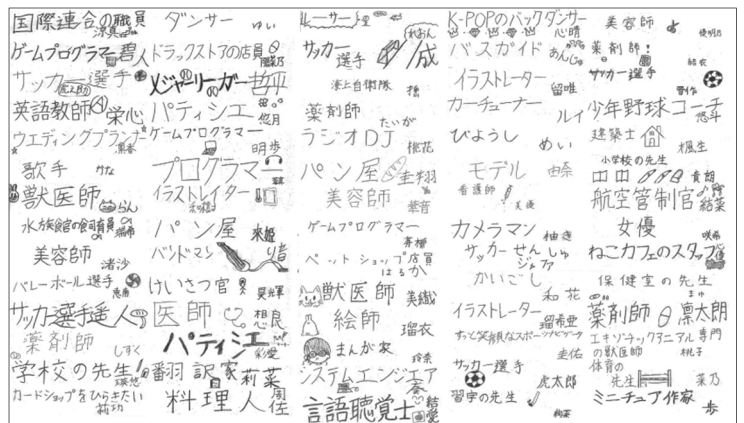 国際連合の職員
ゲームプログラマー 碧人
サッカー選手
英語教師 栄心
ウエディングプランナー
歌手 かな
獣医師 らん
水族館の飼育員
美容師 渚沙
バレーボール選手
サッカー選手 遥人
薬剤師 しずく
学校の先生!
カードショップをひらきたい
ダンサー ゆい
ドラックストアの店員
メジャーリーガー 哲平
パティシエ 悠月
ゲームプログラマー 明歩
プログラマー
イラストレイター
パン屋 來姫
バンドマン
けいさつ官 昊輝
医師 想良
パティシエ 彩愛
翻訳家 莉菜
料理人 周佐
レーサー
サッカー選手 成
海上自衛隊
薬剤師 たいが
ラジオDJ 桃花
パン屋 圭翔
美容師 華音
ゲームプログラマー
ペットショップ店員 はるか
獣医師 美織
絵師 瑠衣
まんが家 玲奈
システムエンジニア
言語聴覚士 結愛
K-POPのバックダンサー 心晴
バスガイド あんじゅ
イラストレーター 留唯
カーチューナー ルイ
びようし めい
モデル 由奈
看護師
カメラマン 柚き
サッカーせんしゅ
かいごし 和花
イラストレーター 瑠希亜
ずっと笑顔なスポーツナビゲータ 圭佑
サッカー選手 虎太郎
習字の先生
美容師
薬剤師!
結衣
サッカー選手
少年野球コーチ 悠斗
建築士 楓生
小学校の先生 貴朗
航空管制官 結菜
女優 咲希
ねこカフェのスタッフ
保健室の先生 まゆ
薬剤師 凛太朗
エキゾチックアニマル専門
の獣医師 桃子
体育の
先生 菜乃
ミニチュア作家 歩